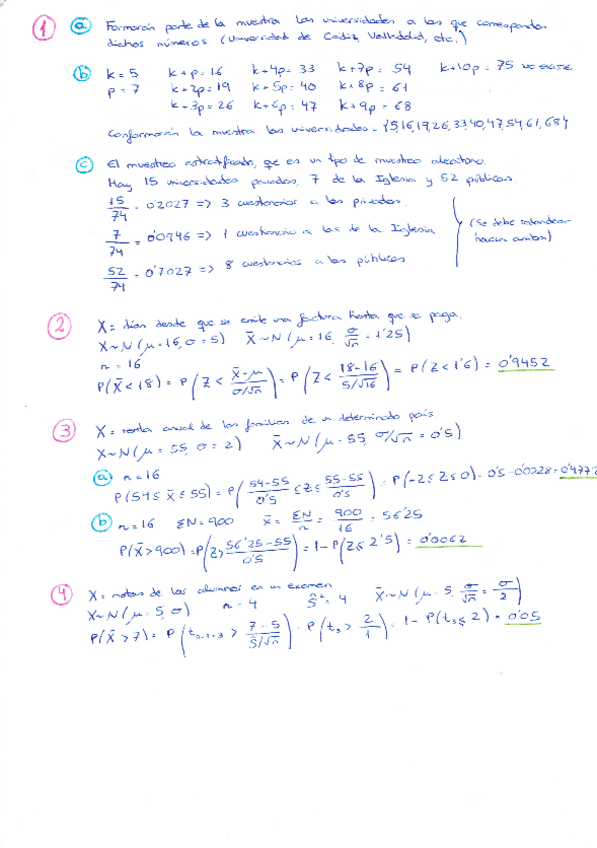 1 a Formarán parte de la muestra las universidades a las que corresponden
dichos números (Universidad de Cádiz, Valladolid, etc.)
b k = 5 k + p = 16 k + 4p = 33 k + 7p = 54 k + 10p = 75 no existe
p = 7 k + 2p = 19 k + 5p = 40 k + 8p = 61
k + 3p = 26 k + 6p = 47 k + 9p = 68
Conformarán la muestra las universidades = {5,16,19,26,33,40,47,54,61,68}
c El muestreo estratificado, que es un tipo de muestreo aleatorio.
Hay 15 universidades privadas, 7 de la Iglesia y 52 públicas.
15/74 = 0'2027 => 3 cuestionarios a las privadas.
7/74 = 0'0946 => 1 cuestionario a las de la Iglesia
(Se debe redondear hacia arriba)
52/74 = 0'7027 => 8 cuestionarios a las públicas
2 X = días desde que se emite una factura hasta que se paga.
X ~ N (μ = 16, σ = 5) X̄ ~ N (μ = 16, σ/√n = 1'25)
n = 16
P(X̄ < 18) = P (Z < X̄-μ / σ/√n) = P (Z < 18-16 / 5/√16) = P (Z < 1'6) = 0'9452
3 X = renta anual de las familias de un determinado país
X ~ N (μ = 55, σ = 2) X̄ ~ N (μ = 55, σ/√n = 0'5)
a n = 16
P (54 ≤ X̄ ≤ 55) = P (54-55 / 0'5 ≤ Z ≤ 55-55 / 0'5) = P (-2 ≤ Z ≤ 0) = 0'5 - 0'0228 = 0'4772
b n = 16 ΣN = 900 x̄ = ΣN/n = 900/16 = 56'25
P(X̄ > 900) = P (Z > 56'25-55 / 0'5) = 1 - P (Z ≤ 2'5) = 0'0062
4 X = notas de los alumnos en un examen
X ~ N (μ = 5, σ) n = 4 Ŝ² = 4 X̄ ~ N (μ = 5, σ/√n = σ/2)
P (X̄ > 7) = P (t > 7-5 / Ŝ/√n) = P (t₃ > 2/1) = 1 - P (t₃ ≤ 2) = 0'05